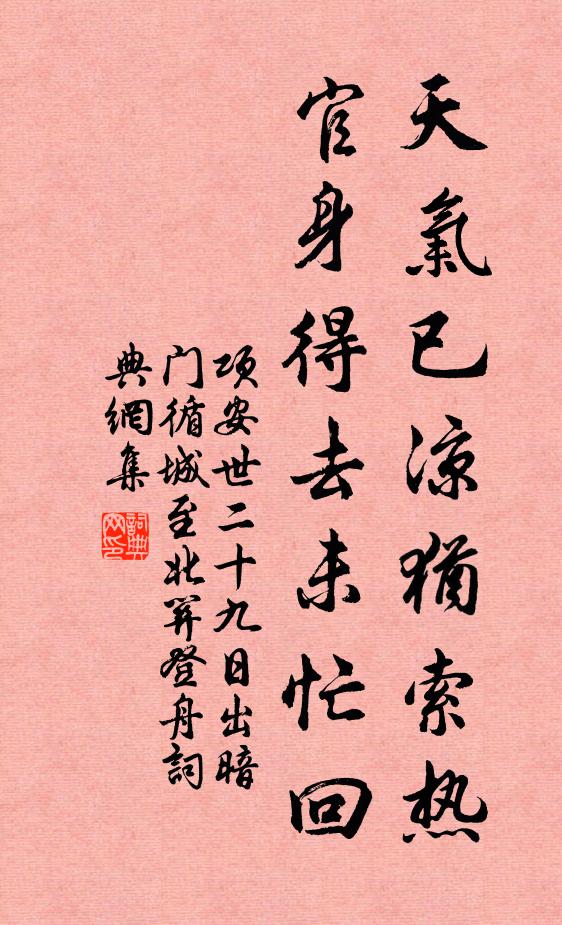 天氣已涼猶索热
官身得去未忙回
項安世二十九日出暗
门循城至北笄登舟詞
典網集
詞典
网印